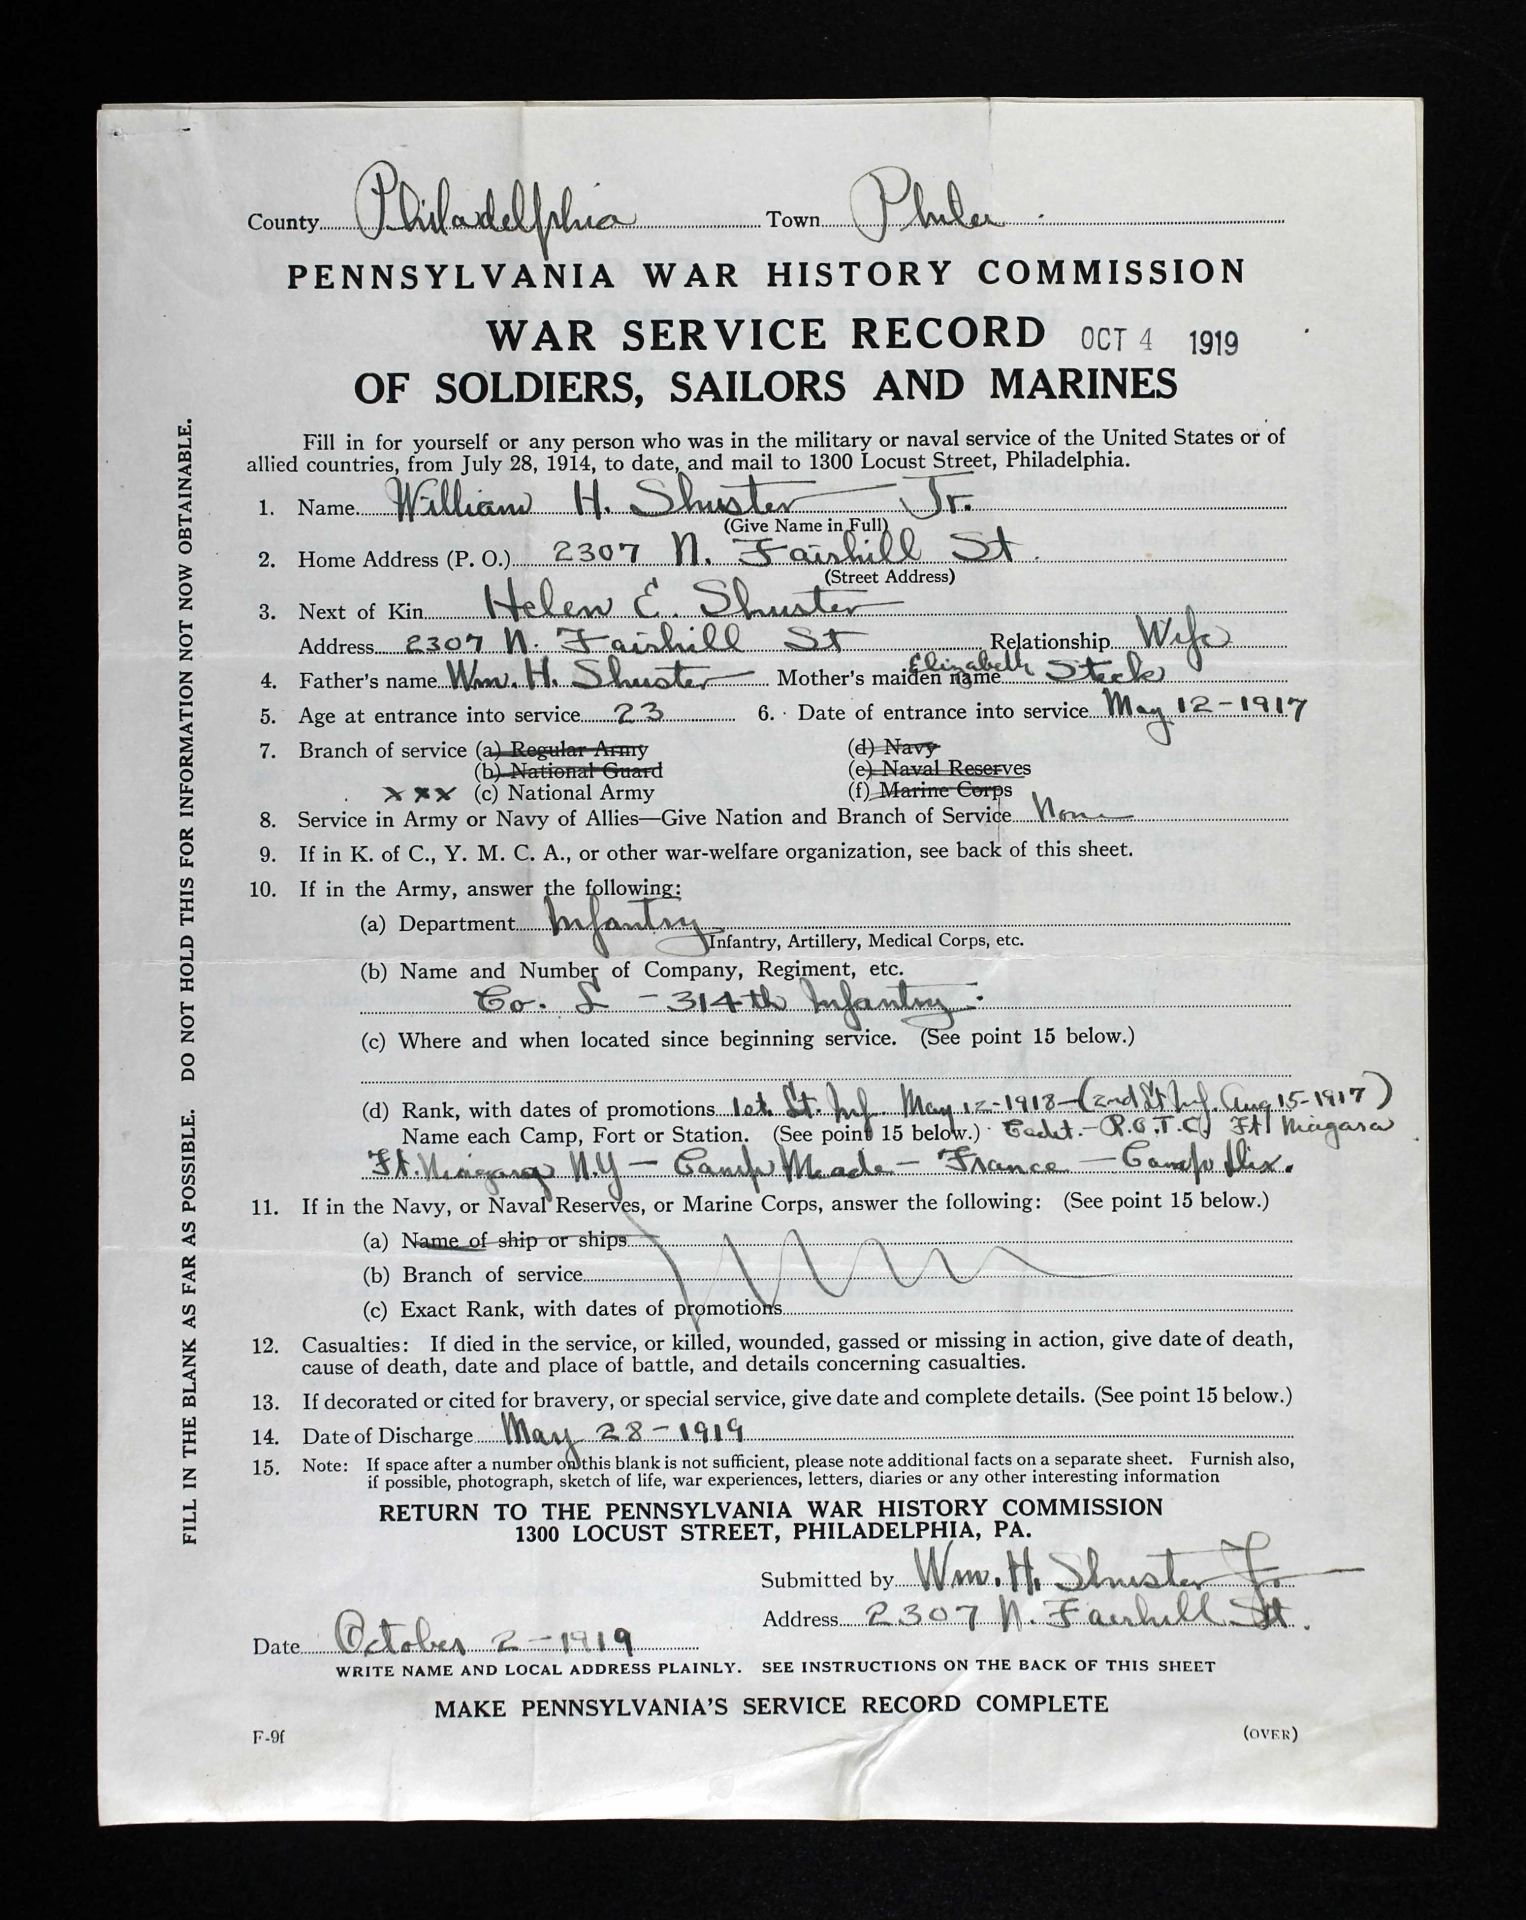 County Philadelphia Town Phila
PENNSYLVANIA WAR HISTORY COMMISSION
WAR SERVICE RECORD OCT 4 1919
OF SOLDIERS, SAILORS AND MARINES
Fill in for yourself or any person who was in the military or naval service of the United States or of
allied countries, from July 28, 1914, to date, and mail to 1300 Locust Street, Philadelphia.
1. Name William H. Shuster Jr.
(Give Name in Full)
2. Home Address (P. O.) 2307 N. Fairhill St.
(Street Address)
3. Next of Kin Helen E. Shuster
Address 2307 N. Fairhill St Relationship Wife
4. Father's name Wm. H. Shuster Mother's maiden name Elizabeth Steck
5. Age at entrance into service 23 6. Date of entrance into service May 12-1917
7. Branch of service (a) Regular Army (d) Navy
(b) National Guard (e) Naval Reserves
xxx (c) National Army (f) Marine Corps
8. Service in Army or Navy of Allies—Give Nation and Branch of Service None
9. If in K. of C., Y. M. C. A., or other war-welfare organization, see back of this sheet.
10. If in the Army, answer the following:
(a) Department Infantry
Infantry, Artillery, Medical Corps, etc.
(b) Name and Number of Company, Regiment, etc.
Co. L - 314th Infantry.
(c) Where and when located since beginning service. (See point 15 below.)
(d) Rank, with dates of promotions 1st. Lt. Inf. May 12-1918-(2nd Lt Inf. Aug 15-1917)
Name each Camp, Fort or Station. (See point 15 below.) Cadet.-R.O.T.C. Ft Niagara
Ft. Niagara N.Y - Camp Meade - France - Camp Dix.
11. If in the Navy, or Naval Reserves, or Marine Corps, answer the following: (See point 15 below.)
(a) Name of ship or ships
(b) Branch of service
(c) Exact Rank, with dates of promotions
12. Casualties: If died in the service, or killed, wounded, gassed or missing in action, give date of death,
cause of death, date and place of battle, and details concerning casualties.
13. If decorated or cited for bravery, or special service, give date and complete details. (See point 15 below.)
14. Date of Discharge May 28-1919
15. Note: If space after a number on this blank is not sufficient, please note additional facts on a separate sheet. Furnish also,
if possible, photograph, sketch of life, war experiences, letters, diaries or any other interesting information
RETURN TO THE PENNSYLVANIA WAR HISTORY COMMISSION
1300 LOCUST STREET, PHILADELPHIA, PA.
Submitted by Wm. H. Shuster Jr.
Address 2307 N. Fairhill St.
Date October 2-1919
WRITE NAME AND LOCAL ADDRESS PLAINLY. SEE INSTRUCTIONS ON THE BACK OF THIS SHEET
MAKE PENNSYLVANIA'S SERVICE RECORD COMPLETE
F-9f (OVER)
FILL IN THE BLANK AS FAR AS POSSIBLE. DO NOT HOLD THIS FOR INFORMATION NOT NOW OBTAINABLE.